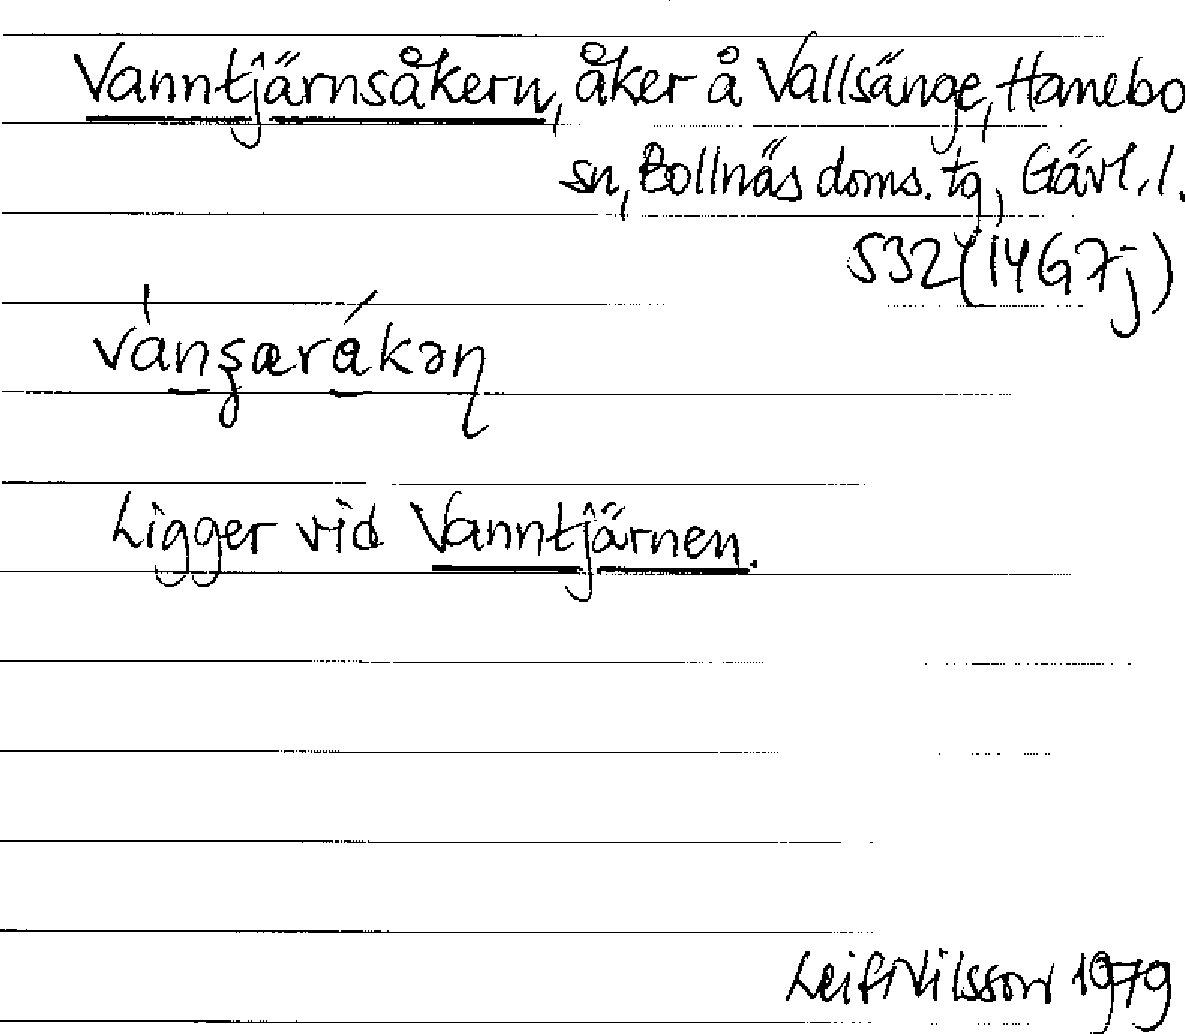 Vanntjärnsåkern, åker å Vallsänge, Hanebo
sn, Bollnäs doms. tg, Gävl. l.
532 (14G7j)
Ligger vid Vanntjärnen.
Leif Nilsson 1979